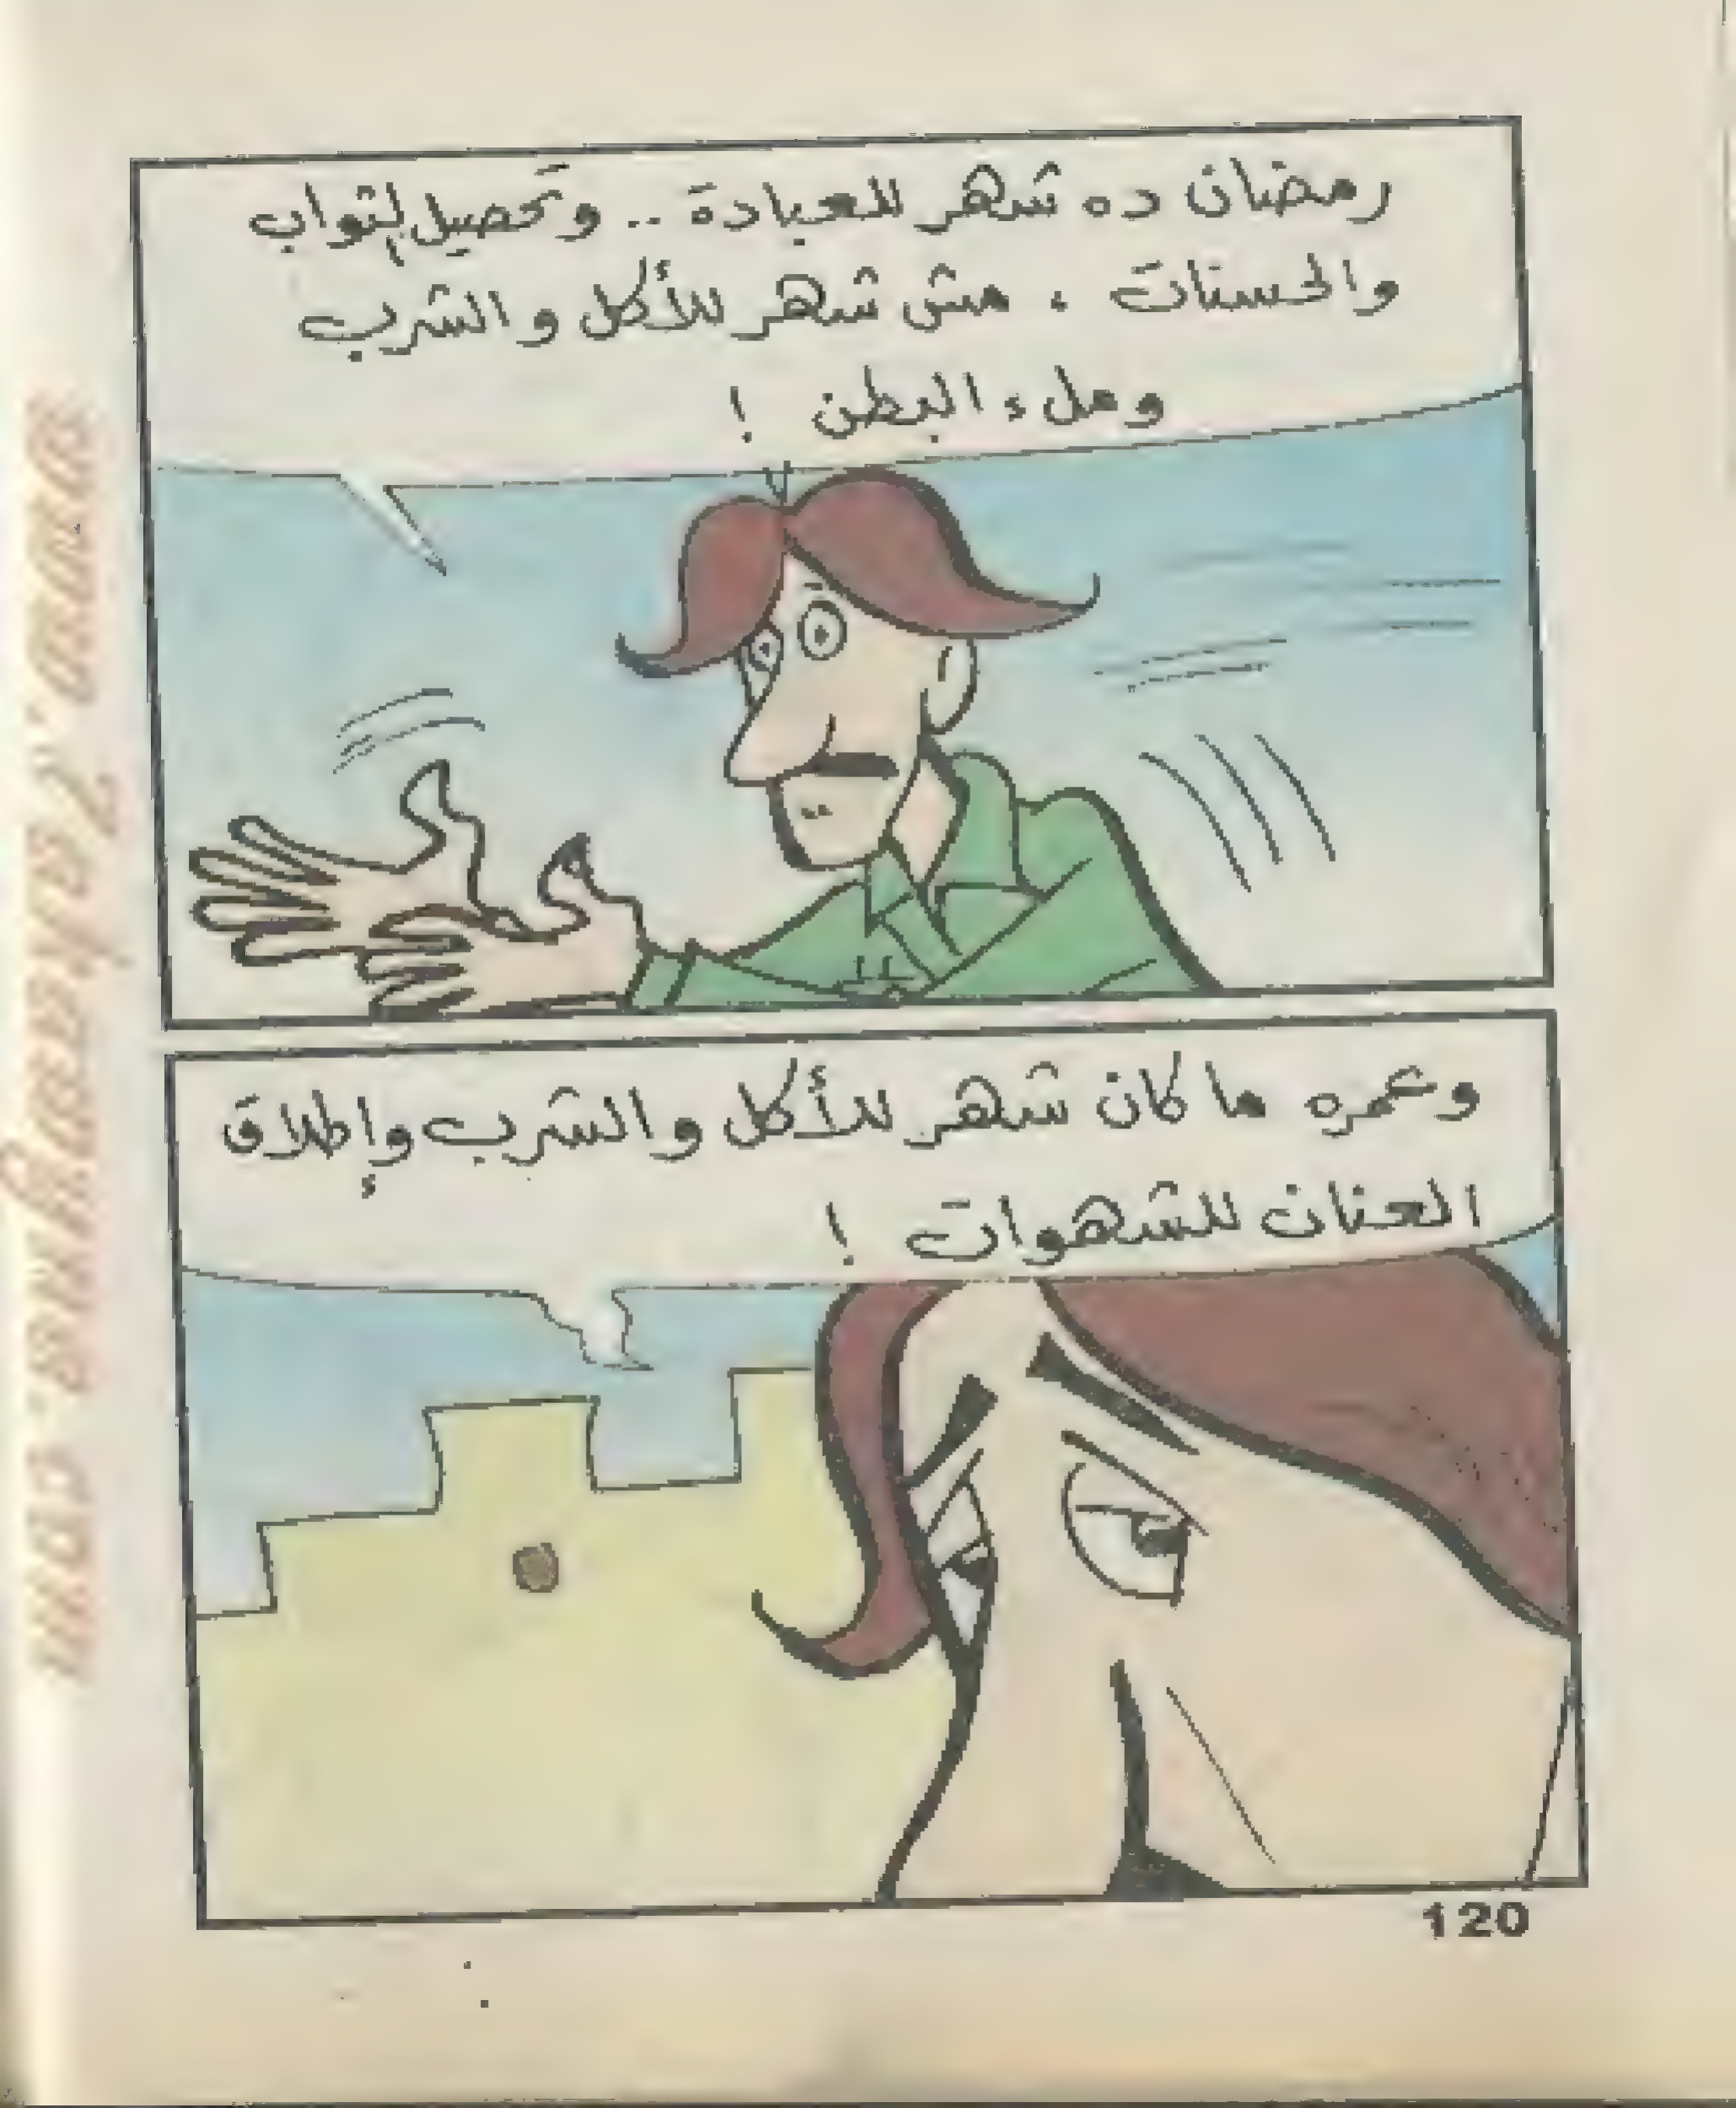 رمضان ده شهر للعبادة .. وتحصيل الثواب
والحسنات ، مش شهر للأكل والشرب
وملء البطن !
وعمره ما كان شهر للأكل والشرب وإطلاق
العنان للشهوات !
120